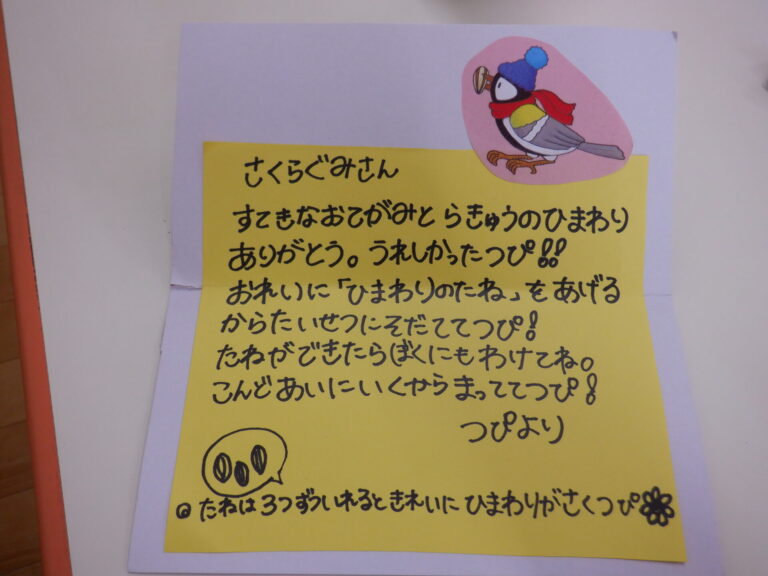 さくらぐみさん
すてきなおてがみと らきゅうのひまわり
ありがとう。うれしかったつぴ!!
おれいに「ひまわりのたね」をあげる
からたいせつにそだててつぴ!
たねができたらぼくにもわけてね。
こんどあいにいくからまっててつぴ!
つぴより
たねは3つずついれるときれいに ひまわりがさくつぴ